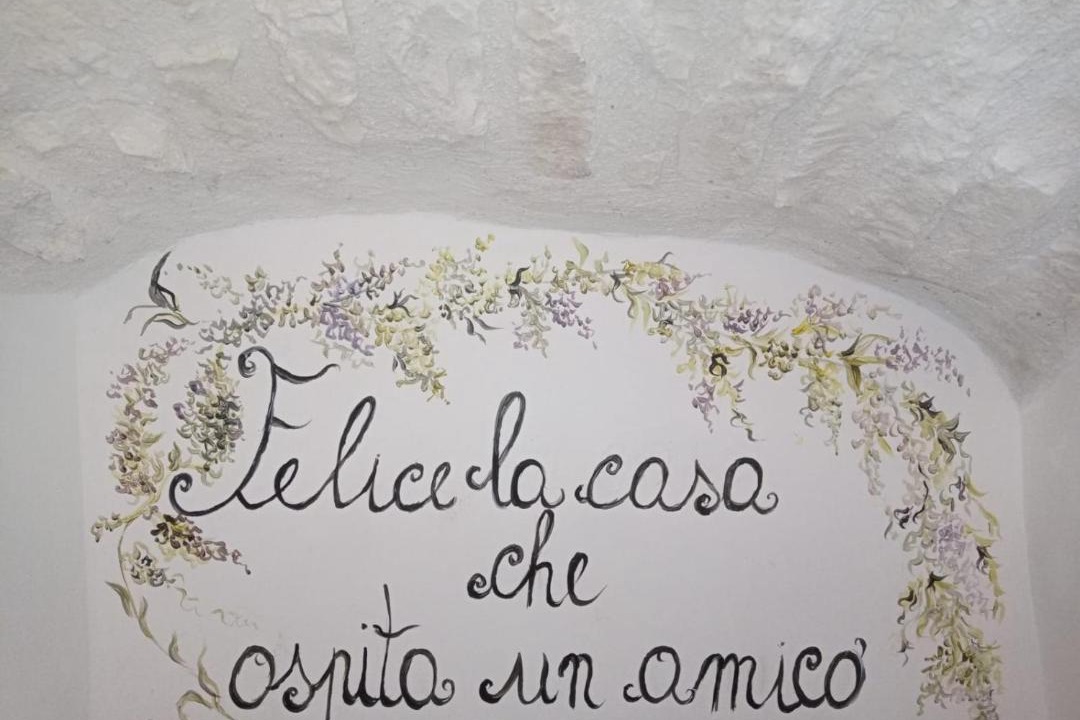 Felice la casa
che
ospita un amico